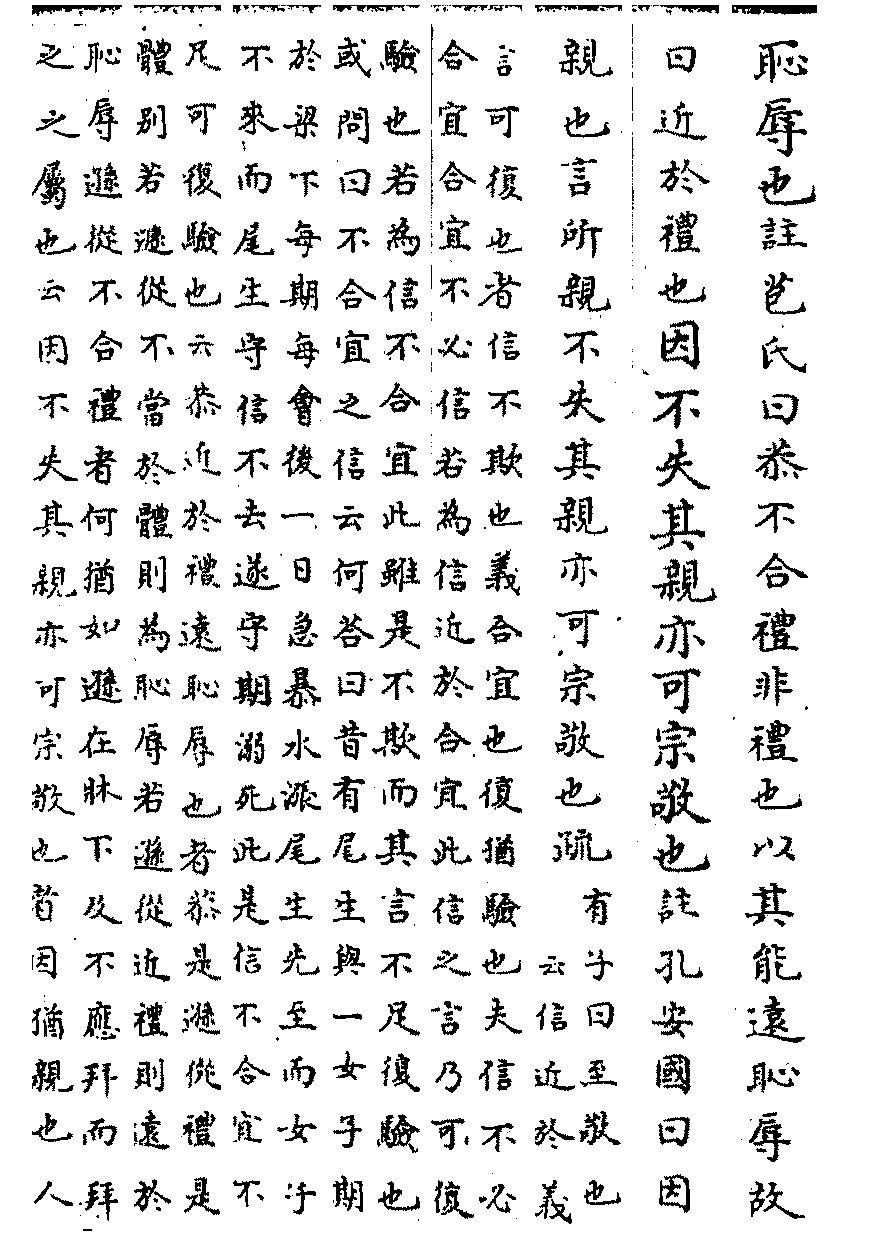 恥辱也註苞氏曰恭不合禮非禮也以其能遠恥辱故
曰近於禮也因不失其親亦可宗敬也註孔安國曰因
親也言所親不失其親亦可宗敬也疏
有子曰至敬也
云信近於義
言可復也者信不欺也義合宜也復猶驗也夫信不必
合宜合宜不必信若為信近於合宜此信之言乃可復
驗也若為信不合宜此雖是不欺而其言不足復驗也
或問曰不合宜之信云何荅曰昔有尾生與一女子期
於梁下每期每會後一日急暴水漲尾生先至而女子
不來而尾生守信不去遂守期溺死此是信不合宜不
足可復驗也云恭近於禮遠恥辱也者恭是遜從禮是
體別若遜從不當於體則為恥辱若遜從近禮則遠於
恥辱遜從不合禮者何猶如遜在牀下及不應拜而拜
之之屬也云因不失其親亦可宗敬也者因猶親也人